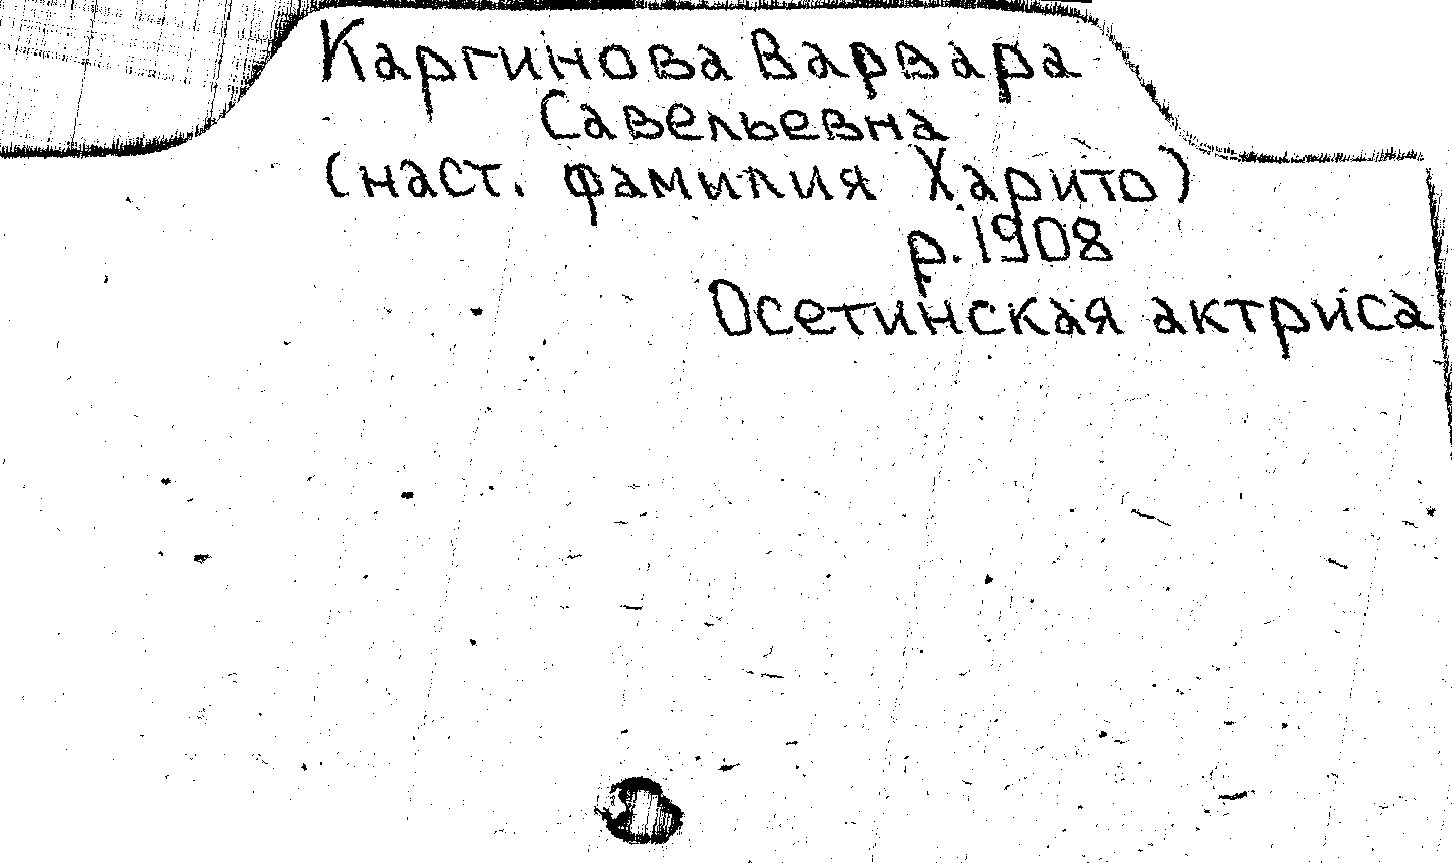 Каргинова Варвара
Савельевна
(наст. фамилия Харито)
р. 1908
Осетинская актриса